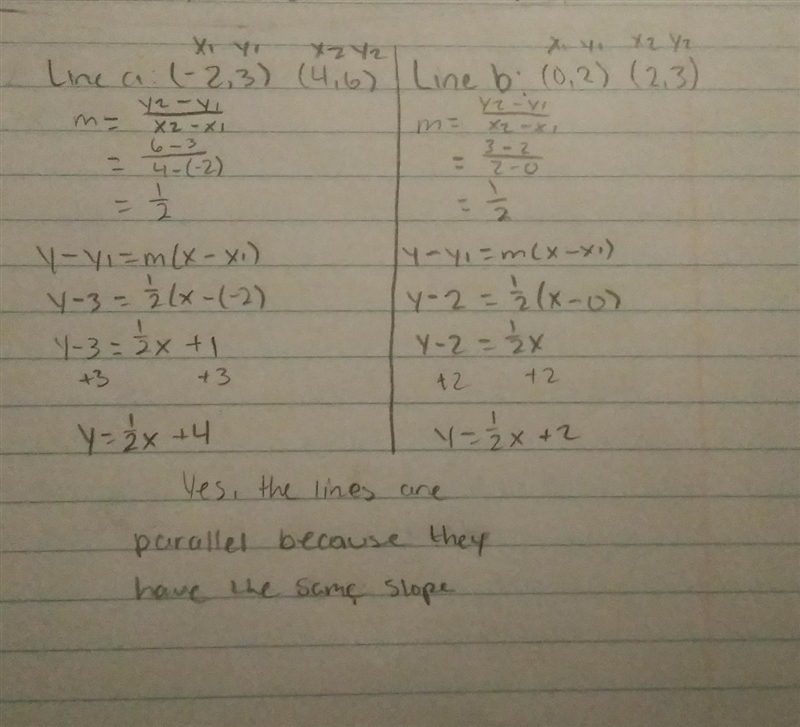 x₁ y₁ x2 y2
Line a: (-2,3) (4,6)
m = y2-y₁/x2-x₁
= 6-3/4-(-2)
= 1/2
y-y₁=m(x-x₁)
y-3 = 1/2(x-(-2)
y-3 = 1/2x +1
+3 +3
y = 1/2x +4
x₁ y₁ x2 y2
Line b: (0,2) (2,3)
m = y2-y₁/x2-x₁
= 3-2/2-0
= 1/2
y-y₁=m(x-x₁)
y-2 = 1/2(x-0)
y-2 = 1/2x
+2 +2
y = 1/2x +2
Yes, the lines are
parallel because they
have the same slope